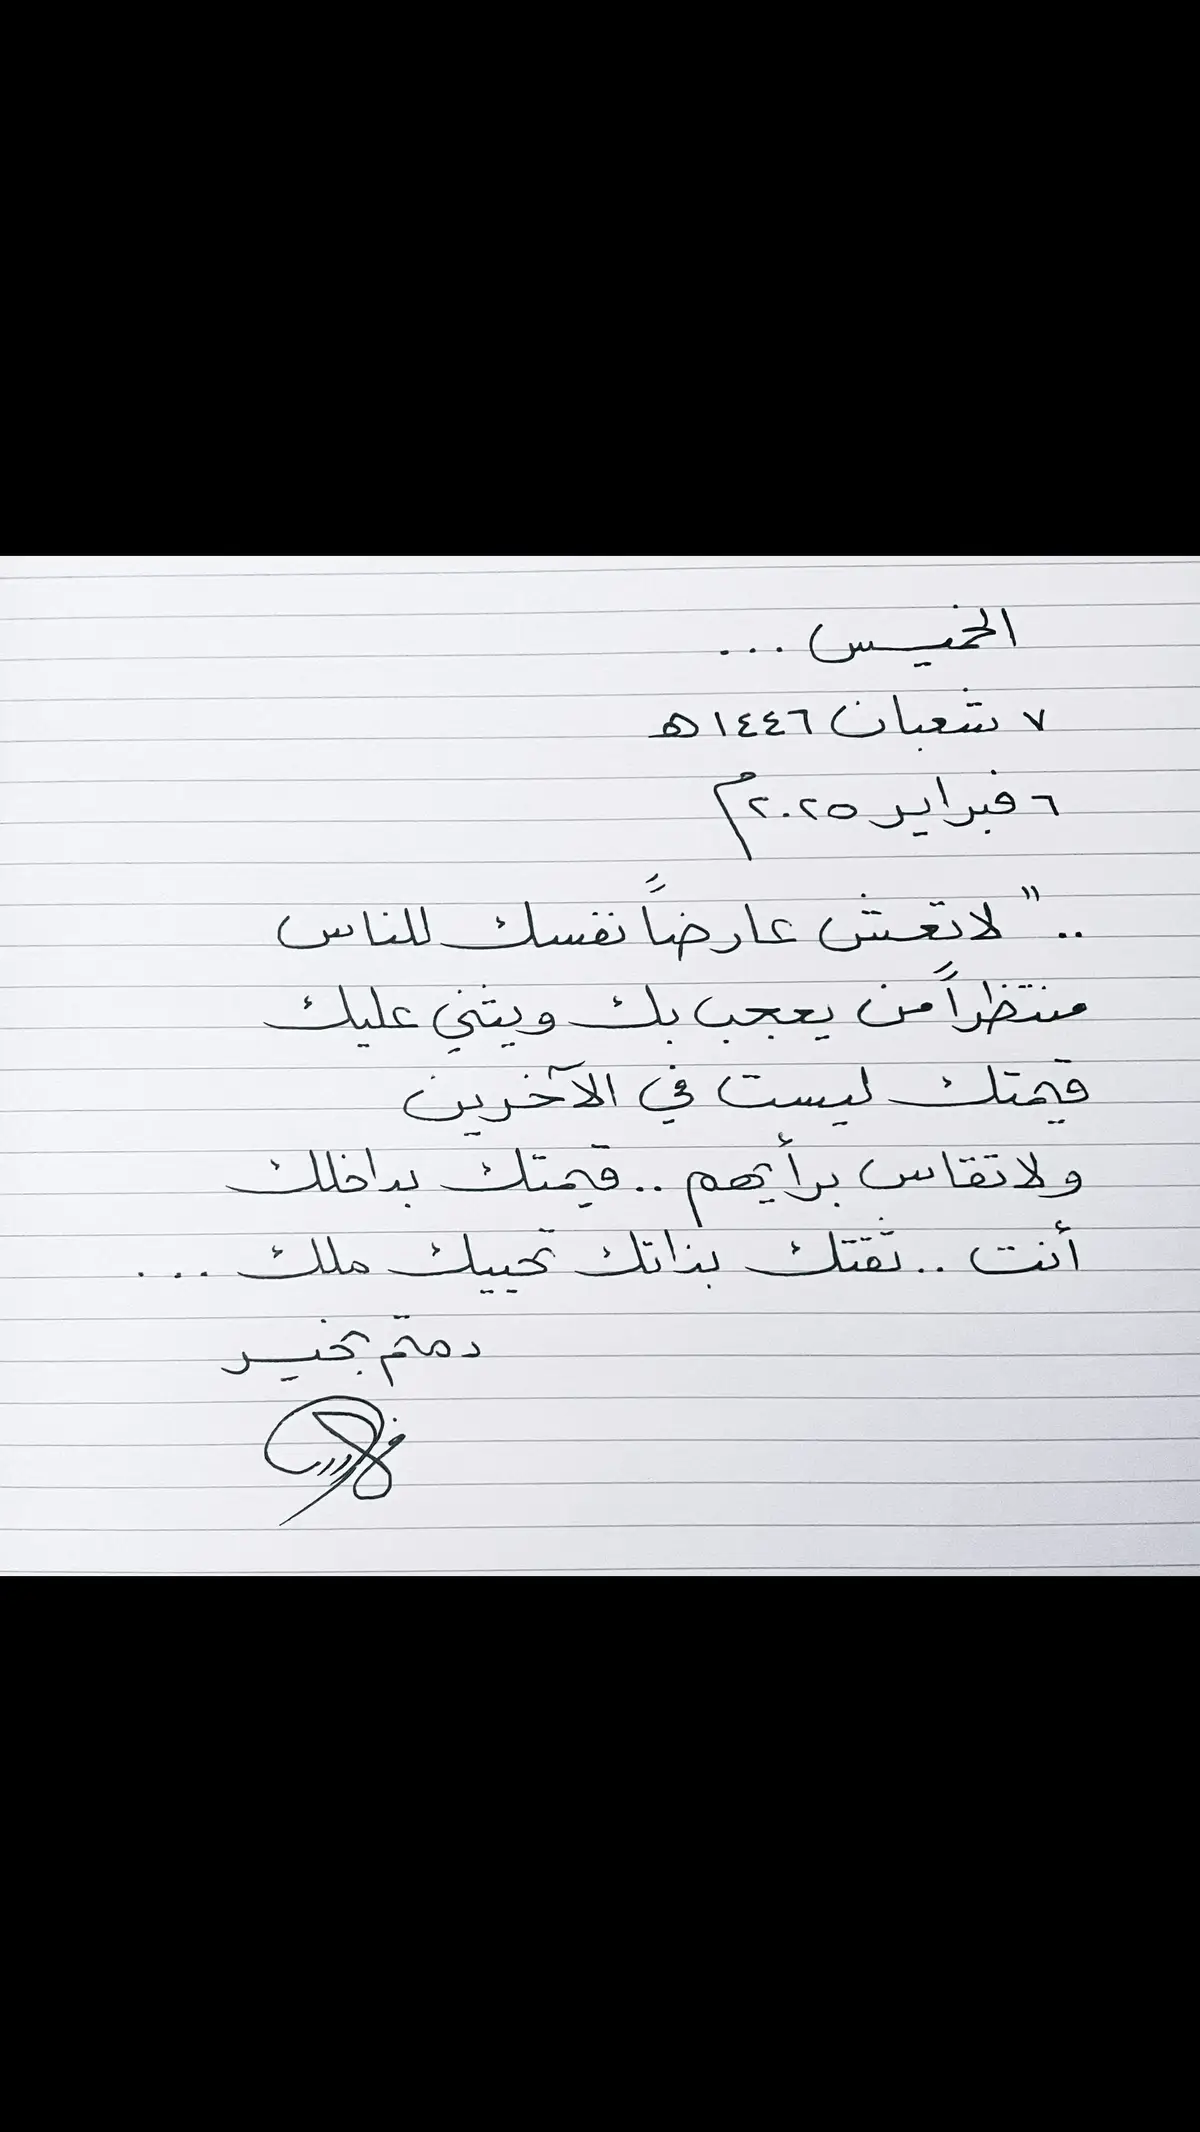 الخميس ...
٧ شعبان ١٤٤٦ه
٦ فبراير ٢٠٢٥م
.." لاتعش عارضاً نفسك للناس
منتظراً من يعجب بك ويثني عليك
قيمتك ليست في الآخرين
ولاتقاس برأيهم .. قيمتك بداخلك
أنت .. ثقتك بذاتك تحييك ملك ...
دمتم بخير